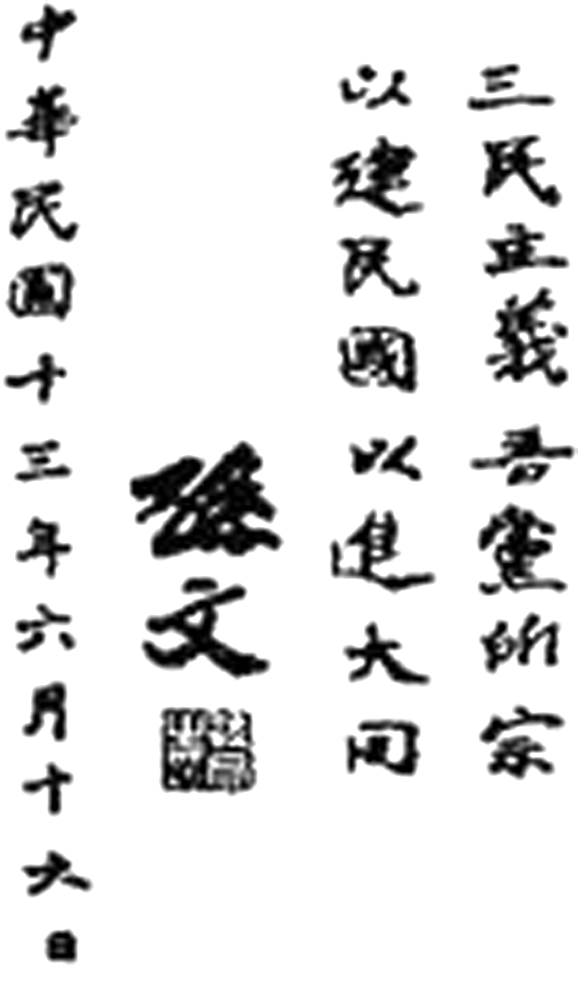 三民主義吾黨所宗
以建民國以進大同
孫文
中華民國十三年六月十六日